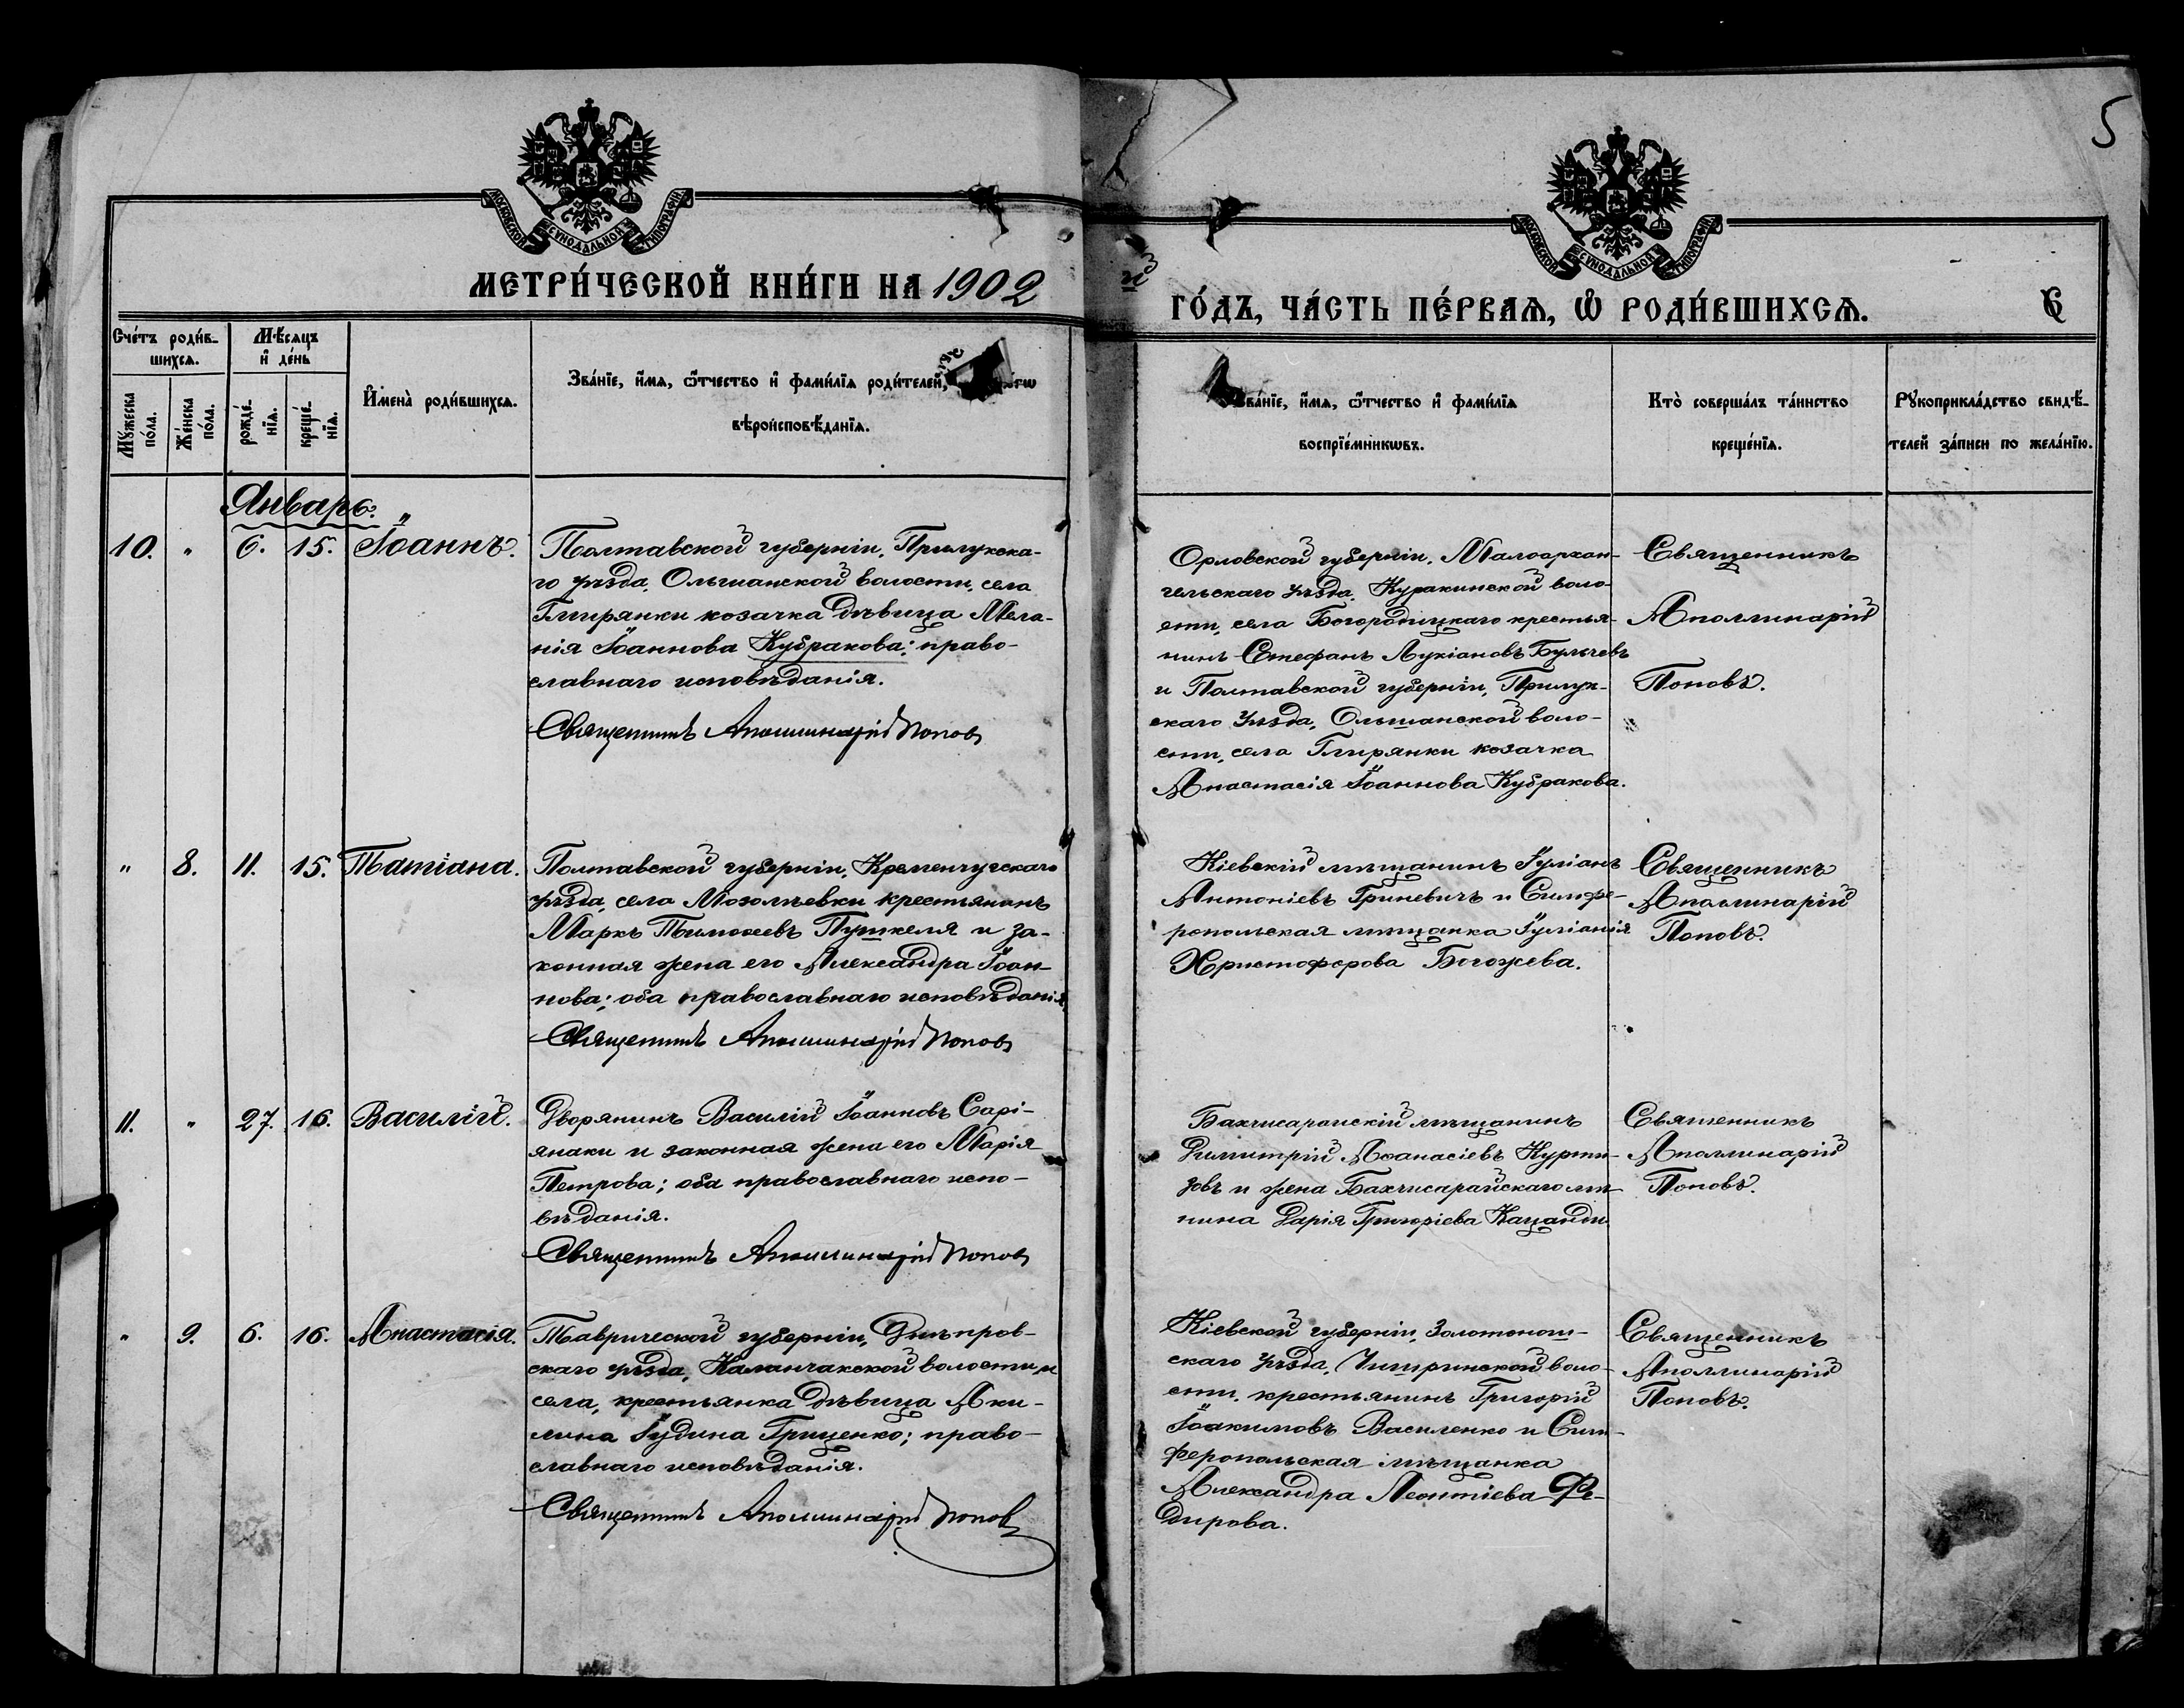 5
МОСКОВСКОЙ СѴНОДАЛЬНОЙ ТИПОГРАФІИ
МОСКОВСКОЙ СѴНОДАЛЬНОЙ ТИПОГРАФІИ
МЕТРИ́ЧЕСКОЙ КНИ́ГИ НА 1902 й
ГО́ДЪ, ЧА́СТЬ ПЕ́РВАѦ, Ѡ҆ РОДИ́ВШИХСѦ.
Сче́тъ роди́в-
шихсѧ.
Мѣ́сѧцъ
и҆ де́нь
Мꙋ́жеска
по́ла.
Же́нска
по́ла.
рожде́-
нїѧ.
креще́-
нїѧ.
И҆мена̀ роди́вшихсѧ.
Зва́нїе, и҆́мѧ, ѻ҆́тчество и҆ фами́лїѧ роди́телей,
вѣроисповѣ́данїѧ.
Зва́нїе, и҆́мѧ, ѻ҆́тчество и҆ фами́лїѧ
воспрїе́мникѡвъ.
Кто̀ соверша́лъ та́инство
креще́нїѧ.
Рꙋкоприкла́дство свидѣ́-
телей за́писи по жела́нїю.
Январь.
10. " 6. 15. Іоаннъ.
Полтавской губерніи, Прилукска-
го уѣзда, Ольшанской волости, села
Гмирянки козачка дѣвица Мела-
нія Іоаннова Кубракова; право-
славнаго исповѣданія.
Священникъ Аполлинарій Попов
Орловской губерніи, Малоархан-
гельскаго уѣзда, Куракинской воло-
сти, села Богородицкаго крестья-
нинъ Стефанъ Лукіановъ Булычевъ
и Полтавской губерніи, Прилук-
скаго уѣзда, Ольшанской воло-
сти, села Гмирянки козачка
Анастасія Іоаннова Кубракова.
Священникъ
Аполлинарій
Поповъ.
" 8. 11. 15. Татіана.
Полтавской губерніи, Кременчугскаго
уѣзда, села Мозолѣевки крестьянинъ
Маркъ Тимоѳеевъ Пушкеля и за-
конная жена его Александра Іоан-
нова; оба православнаго исповѣданія
Священникъ Аполлинарій Попов
Кіевскій мѣщанинъ Іуліанъ
Антоніевъ Гриневичъ и Симфе-
ропольская мѣщанка Іуліанія
Христофорова Богожева.
Священникъ
Аполлинарій
Поповъ.
11. " 27. 16. Василій.
Дворянинъ Василій Іоанновъ Сарі-
янаки и законная жена его Марія
Петрова; оба православнаго испо-
вѣданія.
Священникъ Аполлинарій Попов
Бахчисарайскій мѣщанинъ
Димитрій Аѳанасіевъ Курти-
зовъ и жена Бахчисарайскаго мѣ-
нина Дарія Григоріева Кацанди
Священникъ
Аполлинарій
Поповъ.
" 9. 6. 16. Анастасія.
Таврической губерніи, Днѣпров-
скаго уѣзда, Каланчакской волости, и
села, крестьянка дѣвица Аки-
лина Іудина Гриценко; право-
славнаго исповѣданія.
Священникъ Аполлинарій Попов
Кіевской губерніи, Золотонош-
скаго уѣзда, воло-
сти, крестьянинъ Григорій
Іоакимовъ Василенко и Сим-
феропольская мѣщанка
Александра Леонтіева Фе-
дирова.
Священникъ
Аполлинарій
Поповъ.